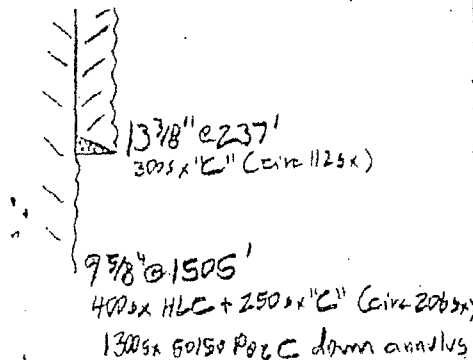 13 3/8" @ 237'
300sx "C" (circ 112sx)
9 5/8" @ 1505'
400sx HLC + 250sx "C" (circ 206sx)
1300sx 50/50 Poz C down annulus